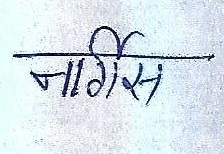 नार्गिस